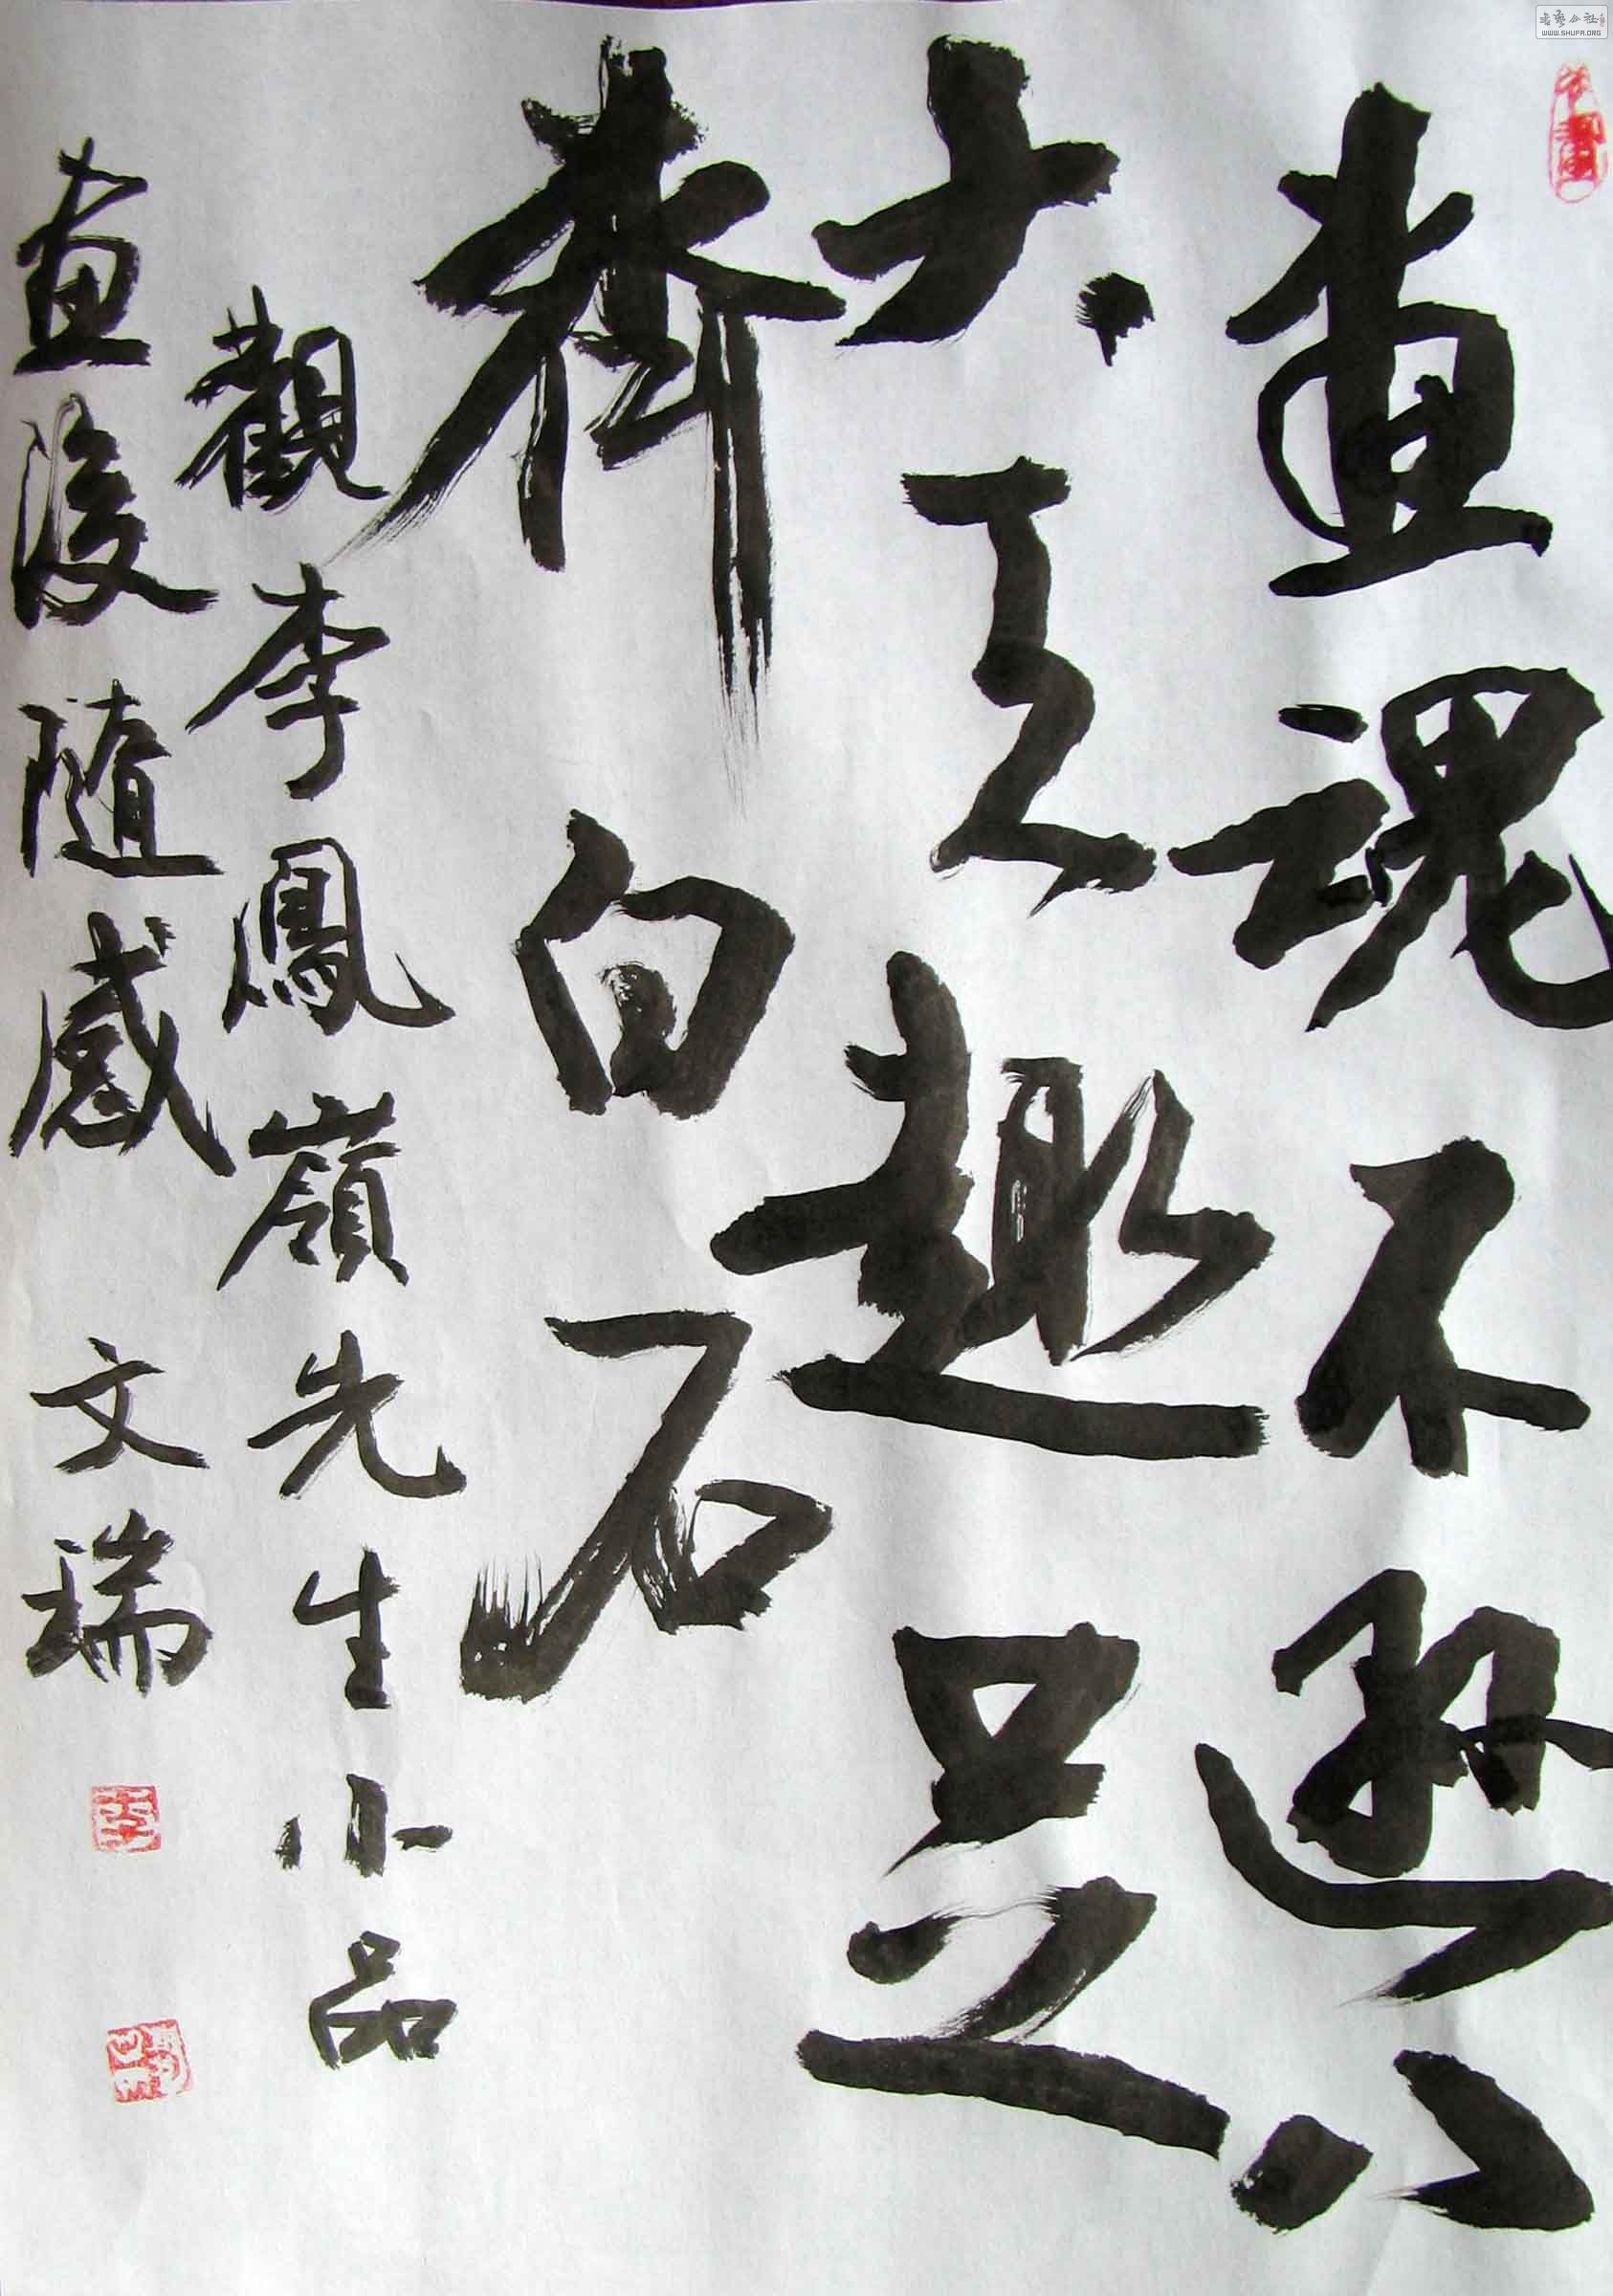 畫魂不遜八
大天趣足
齊白石
觀李鳳嶺先生小品
畫後隨感 文瑞
李
书艺公社
WWW.SHUFA.ORG